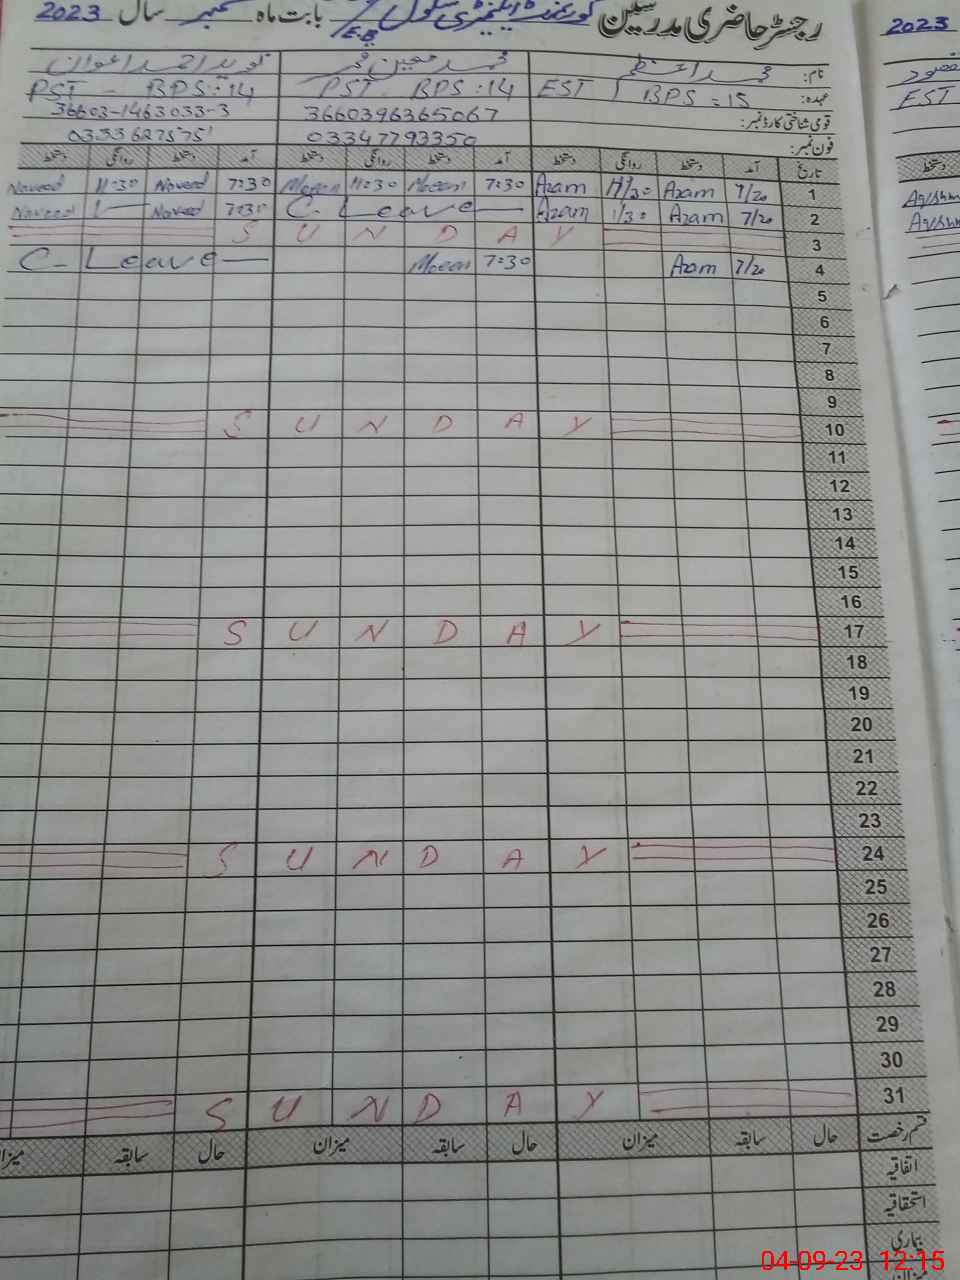 رجسٹر حاضری مدرسین گورنمنٹ ایلیمنٹری سکول E.B بابت ماہ ستمبر سال 2023
نام: محمد اعظم محمد معین قمر نوید احمد اعوان
عہدہ: EST BPS = 15 PST - BPS : 14 PST - BPS : 14
قومی شناختی کارڈ نمبر: 3660396365067 36603-1463033-3
فون نمبر: 03347793350
تاریخ آمد دستخط روانگی دستخط آمد دستخط روانگی دستخط آمد دستخط روانگی دستخط
1 7/20 Azam 11/30 Azam 7:30 Moeen 11:30 Moeen 7:30 Naveed 11:30 Naveed
2 7/20 Azam 1/30 Azam C. Leave 7:30 Naveed Naveed
3 SUNDAY
4 7/20 Azam 7:30 Moeen C. Leave
5
6
7
8
9
10 SUNDAY
11
12
13
14
15
16
17 SUNDAY
18
19
20
21
22
23
24 SUNDAY
25
26
27
28
29
30
31 SUNDAY
قسم رخصت حال سابقہ میزان حال سابقہ میزان حال سابقہ میزان
اتفاقیہ
استحقاقیہ
بیماری
میزان
2023
مقصود
EST
دستخط
04-09-23 12:15